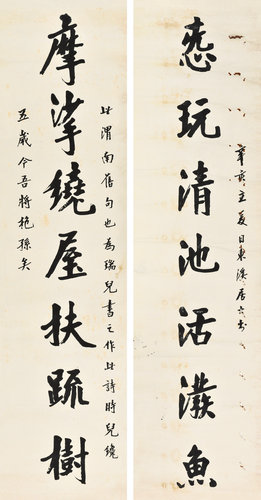 恣玩清池活潑魚
辛亥立夏日東溪居士書
此渭南舊句也為瑞兒書之作此詩時兒纔
摩挲繞屋扶疏樹
五歲今吾將抱孫矣